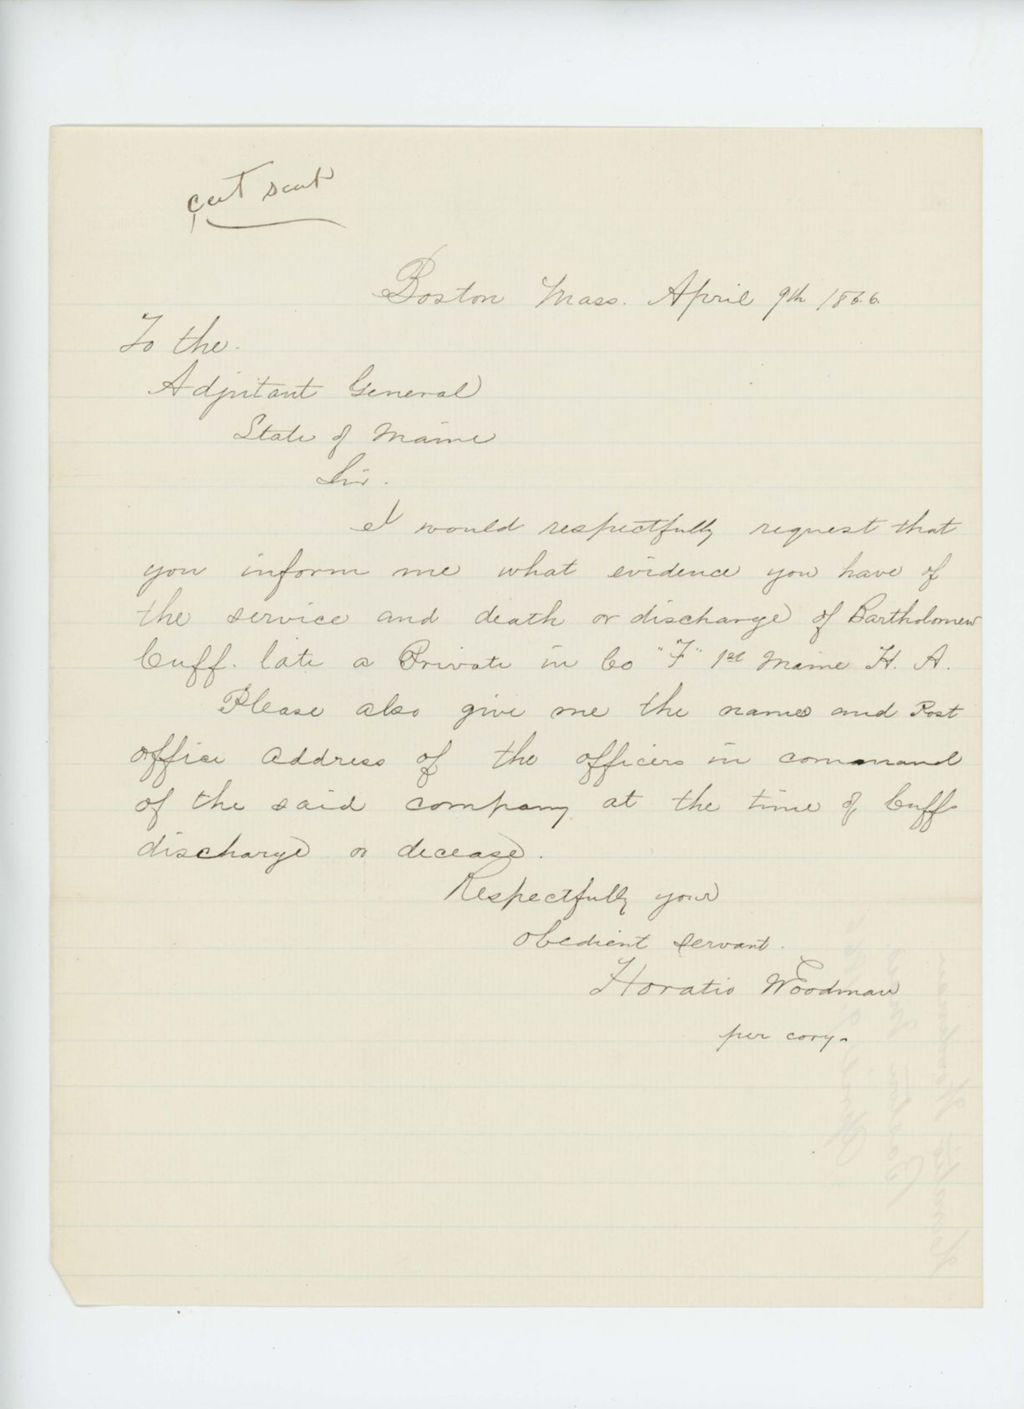 cert sent
Boston Mass. April 9th 1866
To the.
Adjutant General
State of Maine
Sir.
I would respectfully request that
you inform me what evidence you have of
the service and death or discharge of Bartholomew
Cuff. late a Private in Co "F" 1st Maine H. A.
Please also give me the names and Post
office address of the officers in command
of the said company at the time of Cuff
discharge or decease.
Respectfully your
obedient servant.
Horatio Woodman
per